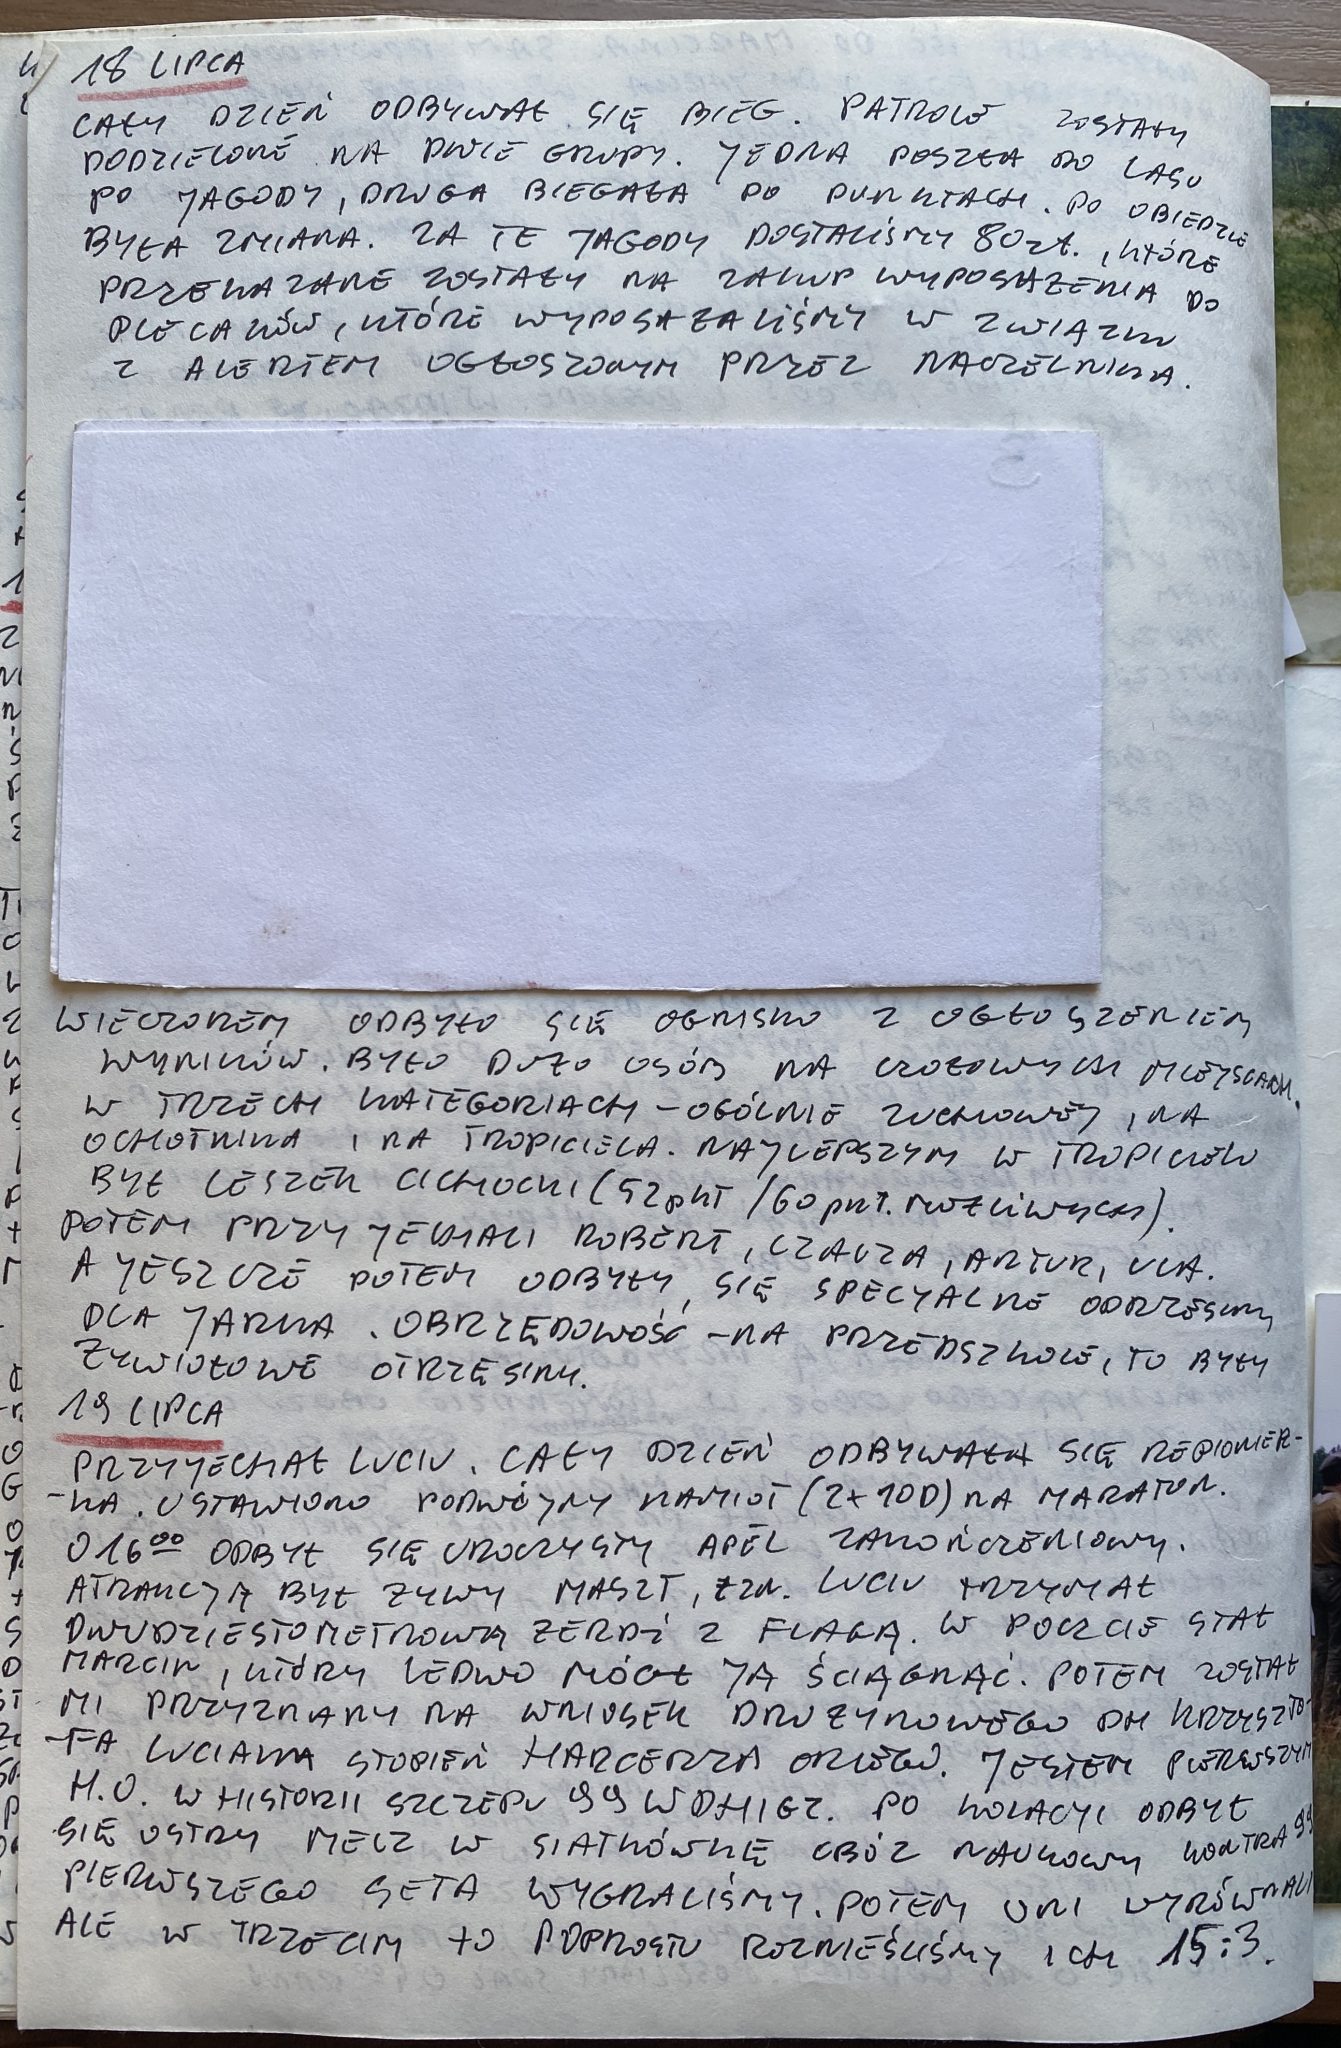 18 LIPCA
CAŁY DZIEŃ ODBYWAŁ SIĘ BIEG. PATROLE ZOSTAŁY
PODZIELONE NA DWIE GRUPY. JEDNA POSZŁA DO LASU
PO JAGODY, DRUGA BIEGAŁA PO PUNKTACH. PO OBIEDZIE
BYŁA ZMIANA. ZA TE JAGODY DOSTALIŚMY 80 zł., KTÓRE
PRZEKAZANE ZOSTAŁY NA ZAKUP WYPOSAŻENIA DO
PLECAKÓW, KTÓRE WYPOSAŻALIŚMY W ZWIĄZKU
Z ALERTEM OGŁOSZONYM PRZEZ NACZELNIKA.
WIECZOREM ODBYŁO SIĘ OGNISKO Z OGŁOSZENIEM
WYNIKÓW. BYŁO DUŻO OSÓB NA CZOŁOWYCH MIEJSCACH.
W TRZECH KATEGORIACH - OGÓLNIE ZUCHOWEJ, NA
OCHOTNIKA I NA TROPICIELA. NAJLEPSZYM W TROPICIELU
BYŁ LESZEK CICHOCKI (52 pkt / 60 pkt. MOŻLIWYCH).
POTEM PRZYJECHALI ROBERT, CZACZA, ARTUR, ULA.
A JESZCZE POTEM ODBYŁY SIĘ SPECJALNE ODRZĘSINY
DLA JARKA. OBRZĘDOWOŚĆ - NA PRZEDSZKOLE, TO BYŁY
ŻYWIOŁOWE OTRZĘSINY.
19 LIPCA
PRZYJECHAŁ LUCIU. CAŁY DZIEŃ ODBYWAŁA SIĘ REPIONIER-
-KA. USTAWIONO PODWÓJNY NAMIOT (2x10D) NA MARATON.
O 16⁰⁰ ODBYŁ SIĘ UROCZYSTY APEL ZAKOŃCZENIOWY.
ATRAKCJĄ BYŁ ŻYWY MASZT, TZN. LUCIU TRZYMAŁ
DWUDZIESTOMETROWĄ ŻERDŹ Z FLAGĄ. W POCZCIE STAŁ
MARCIN, KTÓRY LEDWO MÓGŁ JĄ ŚCIĄGNĄĆ. POTEM ZOSTAŁ
MI PRZYZNANY NA WNIOSEK DRUŻYNOWEGO DH KRZYSZTO-
-FA LUCIAKA STOPIEŃ HARCERZA ORLEGO. JESTEM PIERWSZYM
H.O. W HISTORII SZCZEPU 99 WDHIGZ. PO KOLACJI ODBYŁ
SIĘ OSTRY MECZ W SIATKÓWKĘ OBÓZ NAUKOWY KONTRA 99
PIERWSZEGO SETA WYGRALIŚMY. POTEM ONI WYRÓWNALI
ALE W TRZECIM TO POPROSTU ROZNIEŚLIŚMY ICH 15:3.